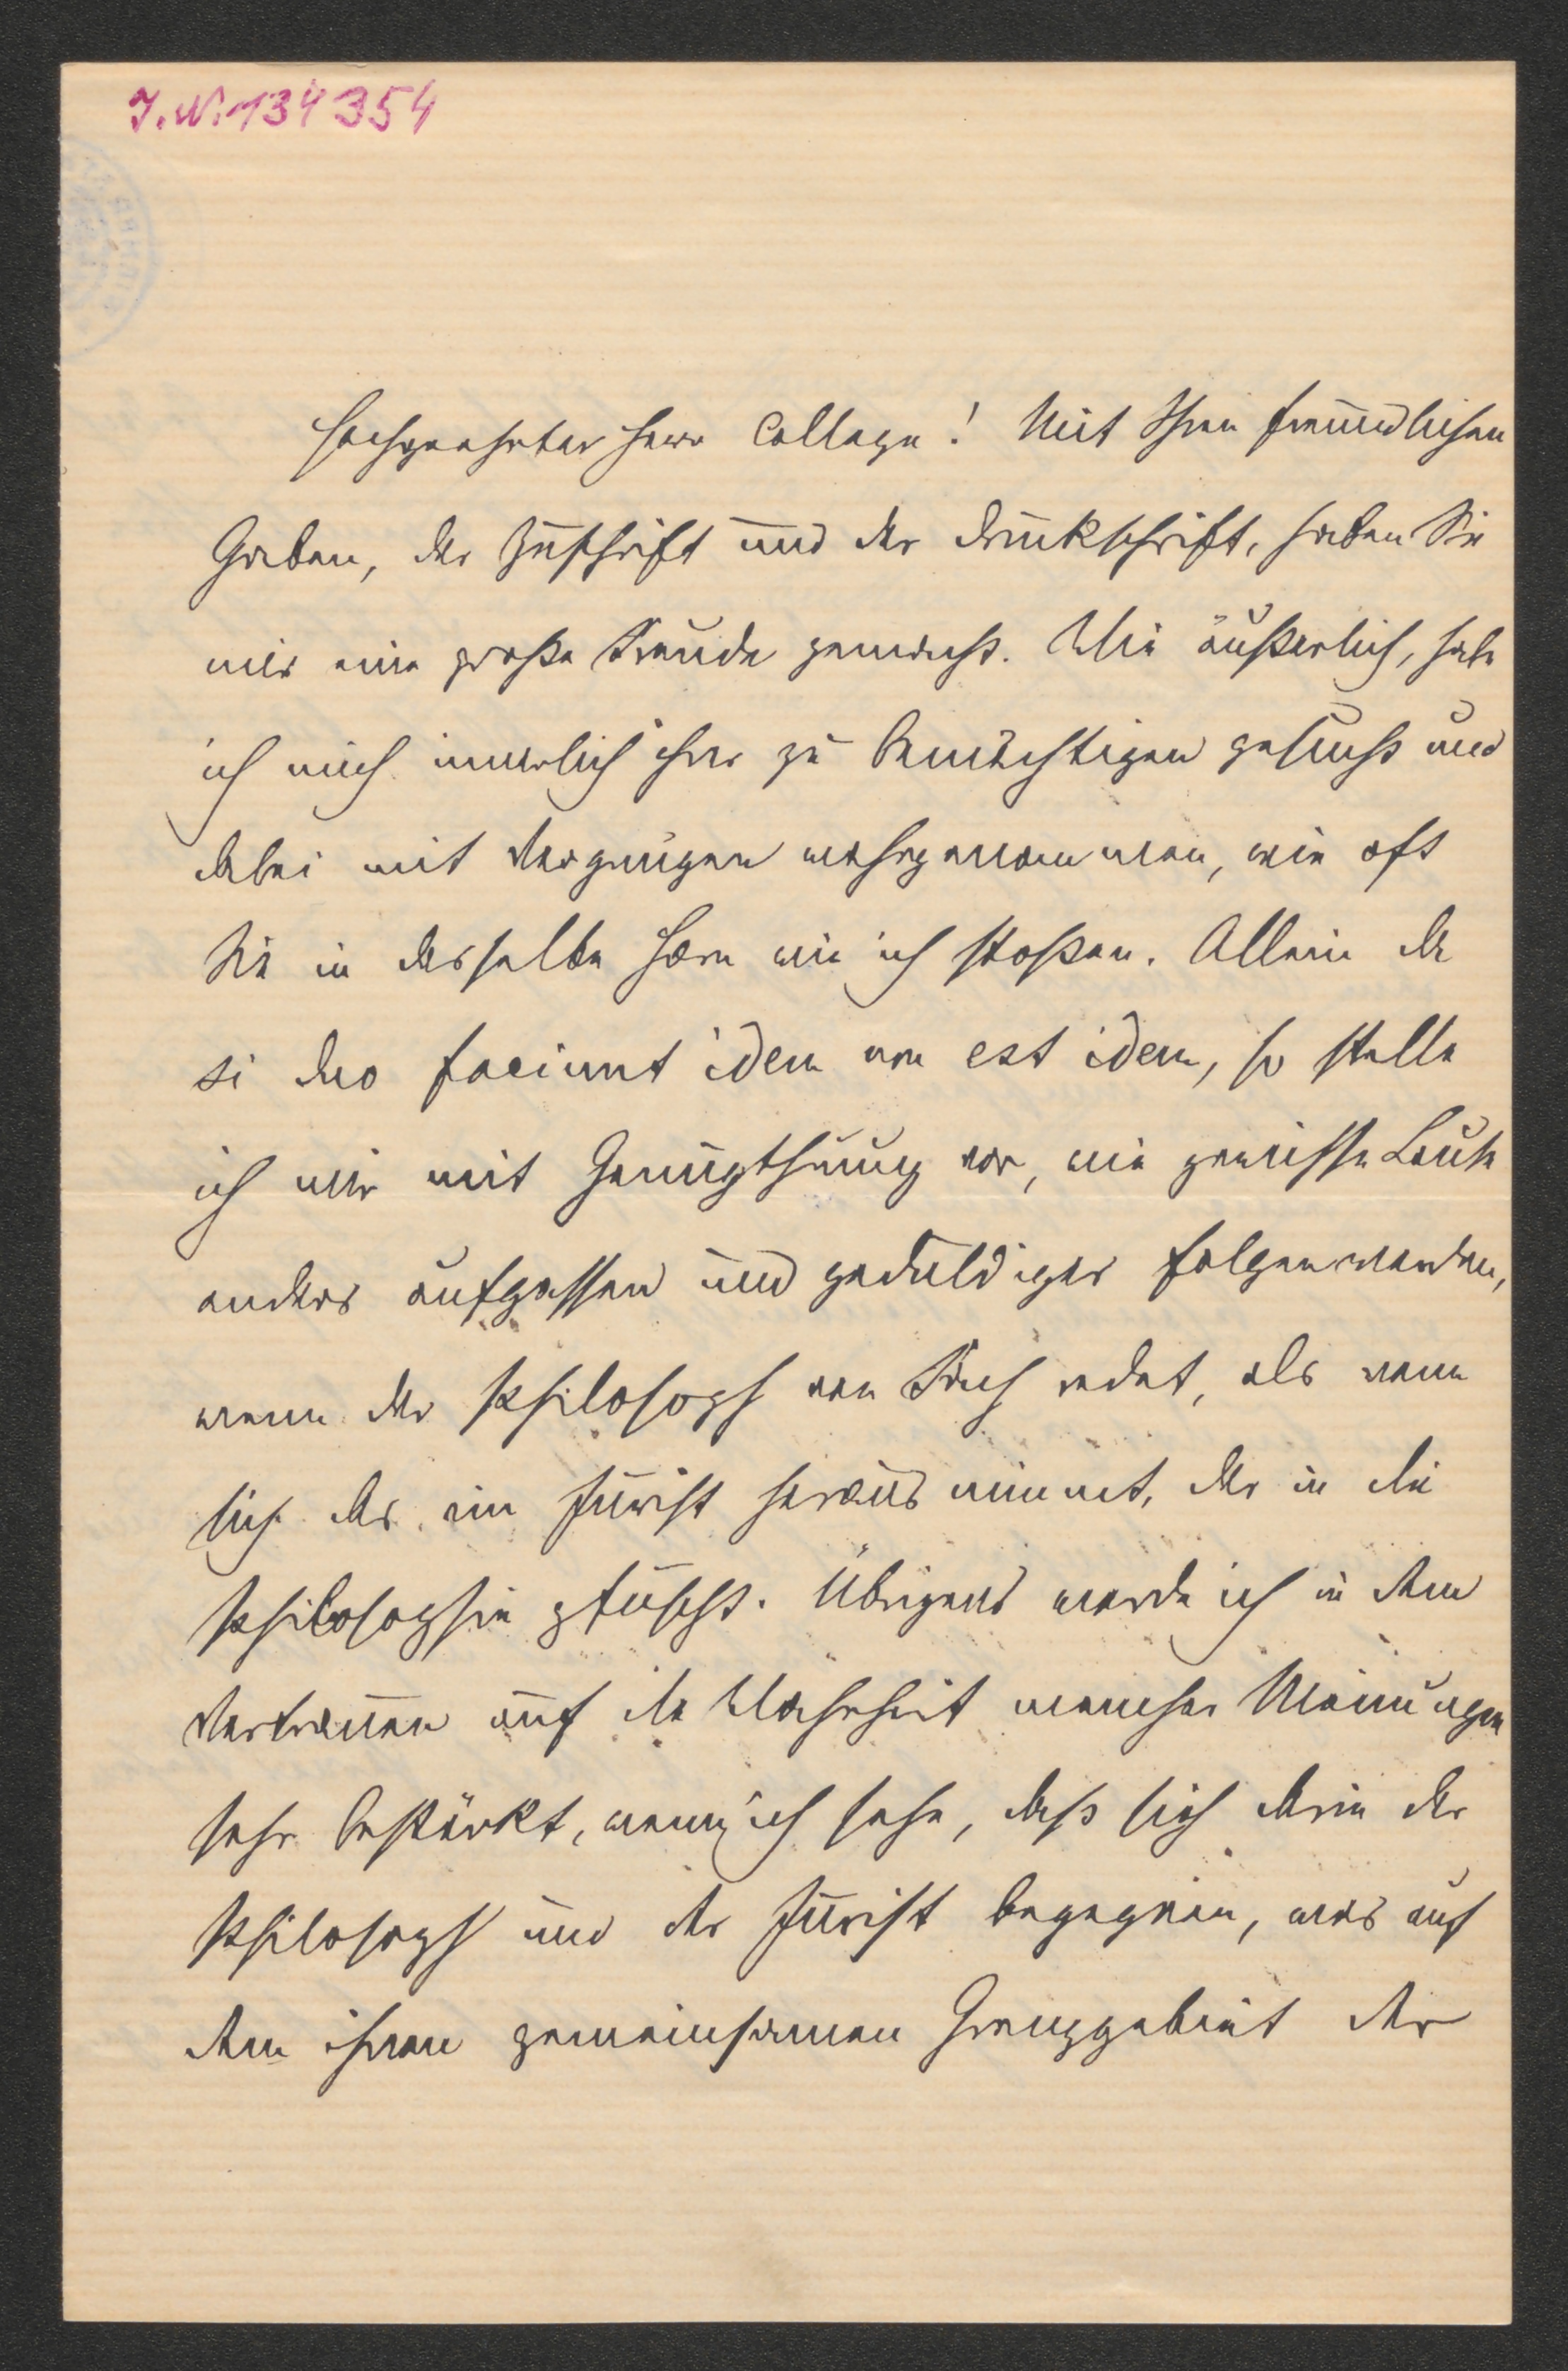 J.N. 134354
Hochgeehrter Herr College! Mit Ihren freundlichen
Gaben, der Zuschrift und der Druckschrift, haben Sie
mir eine große Freude gemacht. Wie äußerlich, habe
ich mich innerlich ihrer zu bemächtigen gesucht und
dabei mit Vergnügen wahrgenommen, wie oft
Sie in dasselbe Horn wie ich stoßen. Allein da
si duo faciunt idem non est idem, so stelle
ich mir mit Genugthuung vor, wie gewisse Leute
anders aufpassen und geduldiger folgen werden,
wenn der Philosoph von Fach redet, als wenn
sich das ein Jurist herausnimmt, der in die
Philosophie pfuscht. Übrigens werde ich in dem
Vertrauen auf die Wahrheit mancher Meinungen
sehr bestärkt, wenn ich sehe, daß sich darin der
Philosoph und der Jurist begegnen, was auf
dem ihnen gemeinsamen Grenzgebiet der